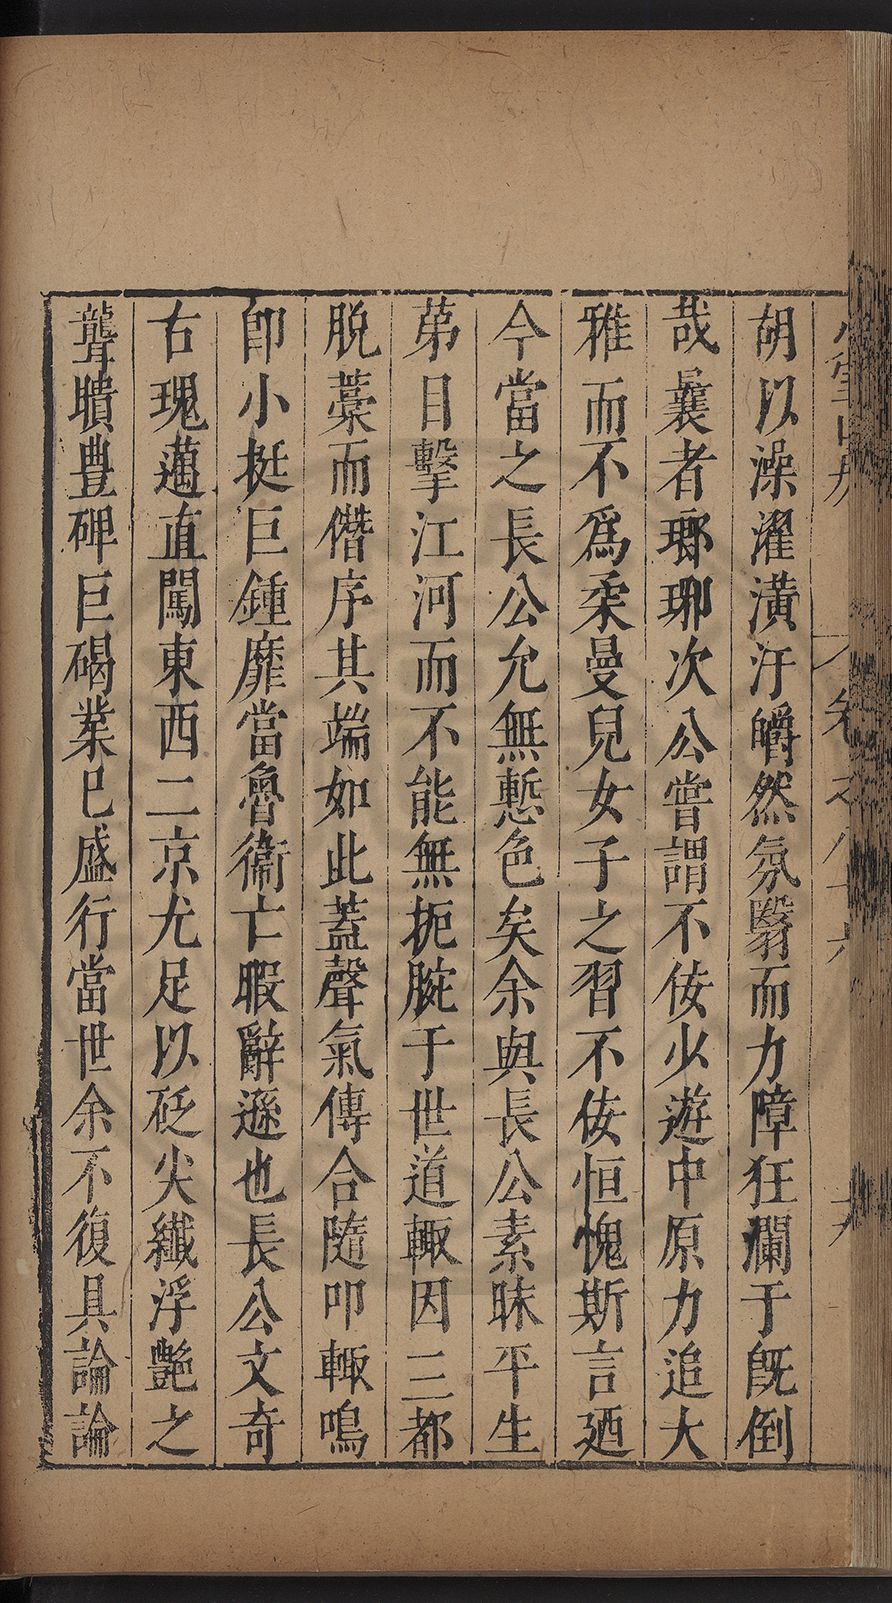 胡以澡濯潢汙皭然氛翳而力障狂瀾于旣倒
哉曩者瑯琊次公嘗謂不佞少遊中原力追大
雅而不爲柔曼兒女子之習不佞恒愧斯言廼
今當之長公允無慙色矣余與長公素昧平生
苐目擊江河而不能無扼腕于世道輙因三都
脫藁而僭序其端如此蓋聲氣傳合隨叩輙鳴
卽小挺巨鍾靡當魯衞亡暇辭遜也長公文奇
古瑰邁直闖東西二京尤足以砭尖纖浮艷之
聾聵豊碑巨碣業已盛行當世余不復具論論